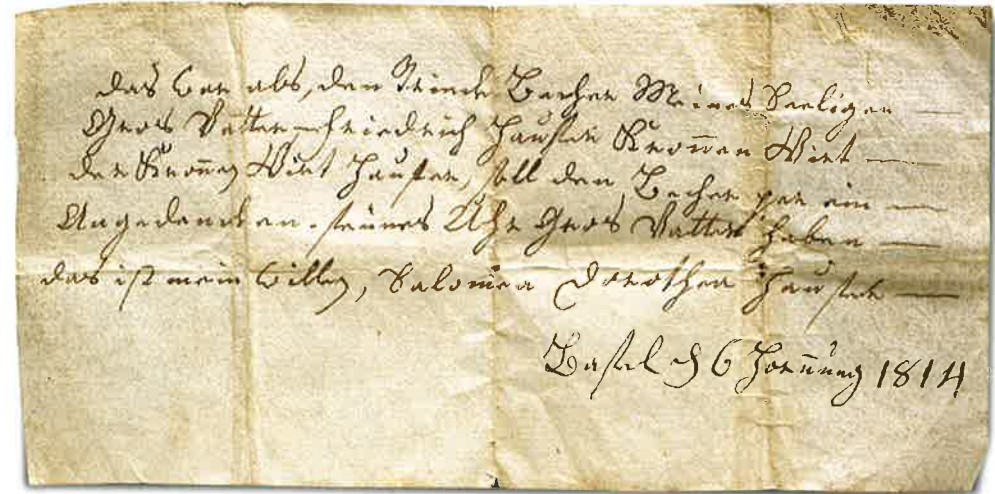 das war abs, den Trinck Becher Meines Seeligen
Gros Vatter Friedrich Hauser Kronnen Wirt
der Kronnen Wirt Hauser, soll den Becher per ein
Angedencken seines Uhr Gros Vatter haben
das ist mein willen, Salomea Dorothea Hauser
Basel d 6 Hornung 1814